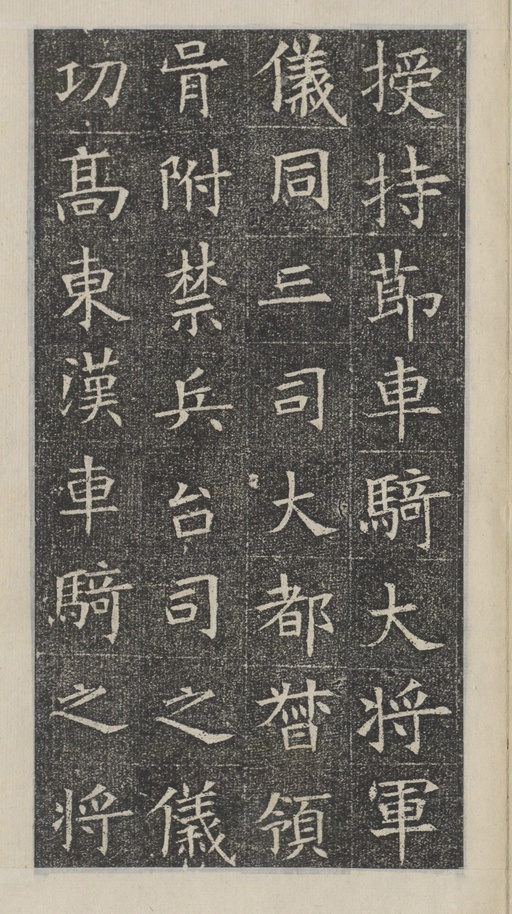 授持莭車騎大将軍
儀同三司大都督領
胥附禁兵台司之儀
功髙東漢車騎之将